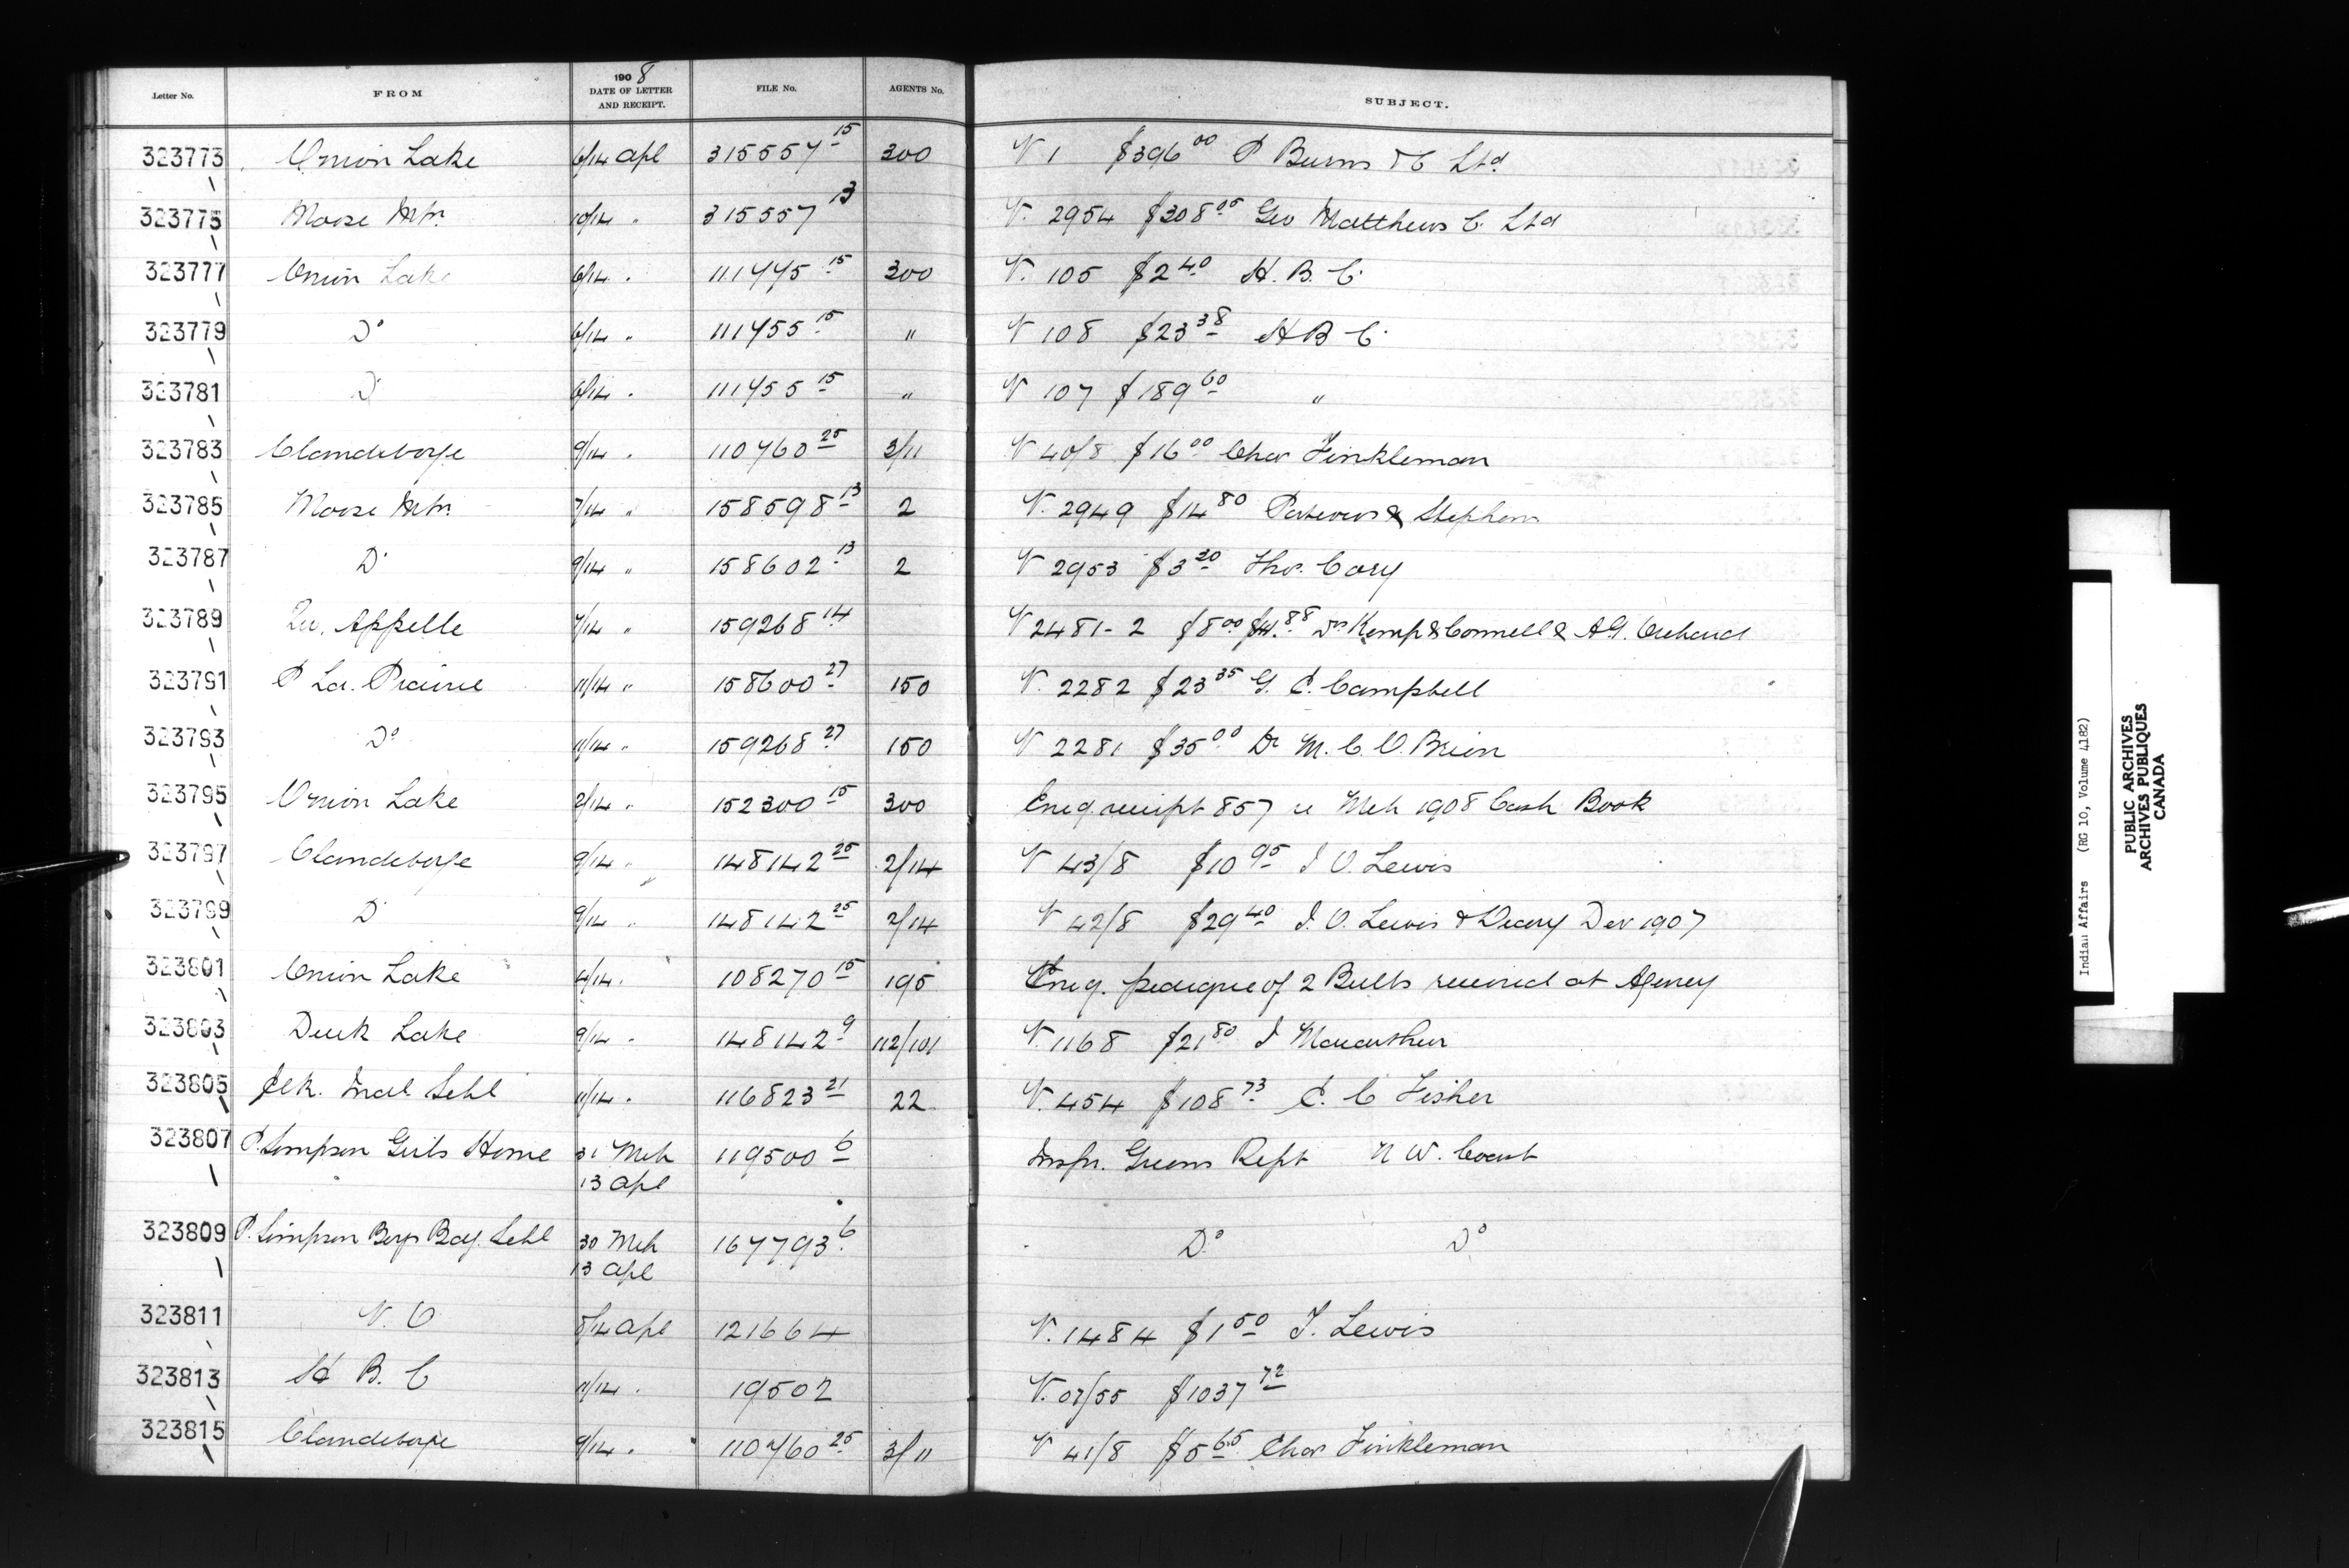 Letter No. FROM 1908 DATE OF LETTER AND RECEIPT. FILE No. AGENTS No. SUBJECT.
323773 Onion Lake 6/14 Apl 315557 15 300 V 1 $396 00 P Burns & C Ltd
323775 Moose Mtn. 10/14 " 315557 13 V. 2954 $308 05 Geo Matthews C. Ltd
323777 Onion Lake 6/14 " 111445 15 300 V. 105 $2 40 H. B. C.
323779 Do 6/14 " 111455 15 " V 108 $23 38 H B C.
323781 Do 6/14 " 111455 15 " V 107 $189 60 "
323783 Clandeboye 9/14 " 110760 25 3/11 V 40/8 $16 00 Chas Finkleman
323785 Moose Mtn. 7/14 " 158598 13 2 V. 2949 $14 80 & Stephens
323787 Do 9/14 " 158602 13 2 V 2953 $3 20 Thos. Cory
323789 Qu. Appelle 7/14 " 159268 14 V 2481-2 $8 00 $4. 88 Drs Kemp & Connell & A.G. Orchard
323791 P La. Prairie 11/14 " 158600 27 150 V. 2282 $23 35 G. C. Campbell
323793 Do 11/14 " 159268 27 150 V 2281 $35 00 Dr M. C. O.Brien
323795 Onion Lake 2/14 " 152300 15 300 Encg. receipt 857 re Mch 1908 Cash Book
323797 Clandeboye 9/14 " 148142 25 2/14 V 43/8 $10 95 J O. Lewis
323799 Do 9/14 " 148142 25 2/14 V 42/8 $29 40 J. O. Lewis & Dec 1907
323801 Onion Lake 4/14 " 108270 15 195 Encg. pedigree of 2 Bulls received at Agency
323803 Duck Lake 9/14 " 148142 9 112/101 V. 1168 $21 80 J Macarthur
323805 Elk. Indl. Schl 11/14 " 116823 21 22 V. 454 $108 73 C. C Fisher
323807 P. Simpson Girls Home 31 Mch 119500 6 Inspr. Greens Rept N W. Coast
13 Apl
323809 P. Simpson Boys Bdg. Schl 30 Mch 167793 6 Do Do
13 Apl
323811 V. O 8/14 Apl 121664 V. 1484 $1 50 T. Lewis
323813 H B. C 11/14 " 19502 V. 07/55 $1037 72
323815 Clandeboye 9/14 " 110760 25 3/11 V 41/8 $5 65 Chas Finkleman
Indian Affairs (RG 10, Volume 4182)
PUBLIC ARCHIVES
ARCHIVES PUBLIQUES
CANADA